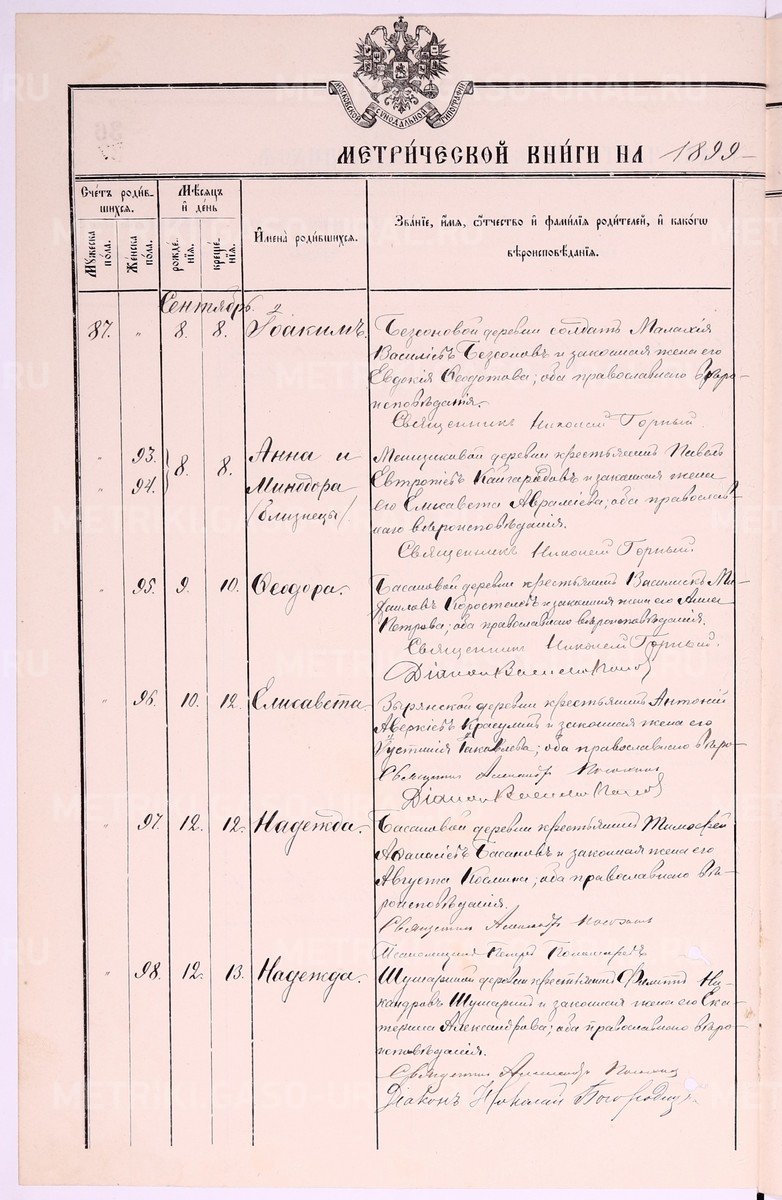 МОСКОВСКОЙ СѴНОДАЛЬНОЙ ТИПОГРАФІИ
МЕТРИ́ЧЕСКОЙ КНИ́ГИ НА 1899
Сче́тъ роди́вшихся.
Мꙋ́жеска пола.
Же́нска пола.
Мѣ́сяцъ и҆ де́нь
рожде́нїѧ.
креще́нїѧ.
И҆мена̀ роди́вшихсѧ.
Зва́нїе, и҆́мѧ, ѻ҆́тчество и҆ фами́лїѧ роди́телей, и҆ како́гѡ вѣроисповѣ́данїѧ.
Сентябрь
87. " 8. 8. Іоакимъ.
Безсоновой деревни солдатъ Малахія
Василіевъ Безсоновъ и законная жена его
Евдокія Ѳеодотова; оба православнаго вѣро-
исповѣданія.
Священникъ Николай Горный.
" 93. 94. 8. 8. Анна и
Минодора
/близнецы/.
деревни крестьянинъ Павелъ
Евтропіевъ Кайгородовъ и законная жена
его Елисавета Авраміева; оба православ-
наго вѣроисповѣданія.
Священникъ Николай Горный
" 95. 9. 10. Ѳеодора.
Басановой деревни крестьянинъ Василискъ Ми-
хаиловъ Коростелевъ и законная жена его Анна
Петрова; оба православнаго вѣроисповѣданія.
Священникъ Николай Горный.
Діаконъ
" 96. 10. 12. Елисавета
Зырянской деревни крестьянинъ Антоній
Аверкіевъ Красулинъ и законная жена его
Іустинія Іаковлева; оба православнаго вѣро-
Священникъ Александръ
Діаконъ
" 97. 12. 12. Надежда.
Басановой деревни крестьянинъ Тимоѳей
Аѳанасіевъ Басановъ и законная жена его
Августа Космина; оба православнаго вѣ-
роисповѣданія.
Священникъ Александръ
Псаломщикъ Петръ
" 98. 12. 13. Надежда.
Шушариной деревни крестьянинъ Филиппъ Ни-
кандровъ Шушаринъ и законная жена его Ека-
терина Александрова; оба православнаго вѣро-
исповѣданія.
Священникъ Александръ
Діаконъ Николай